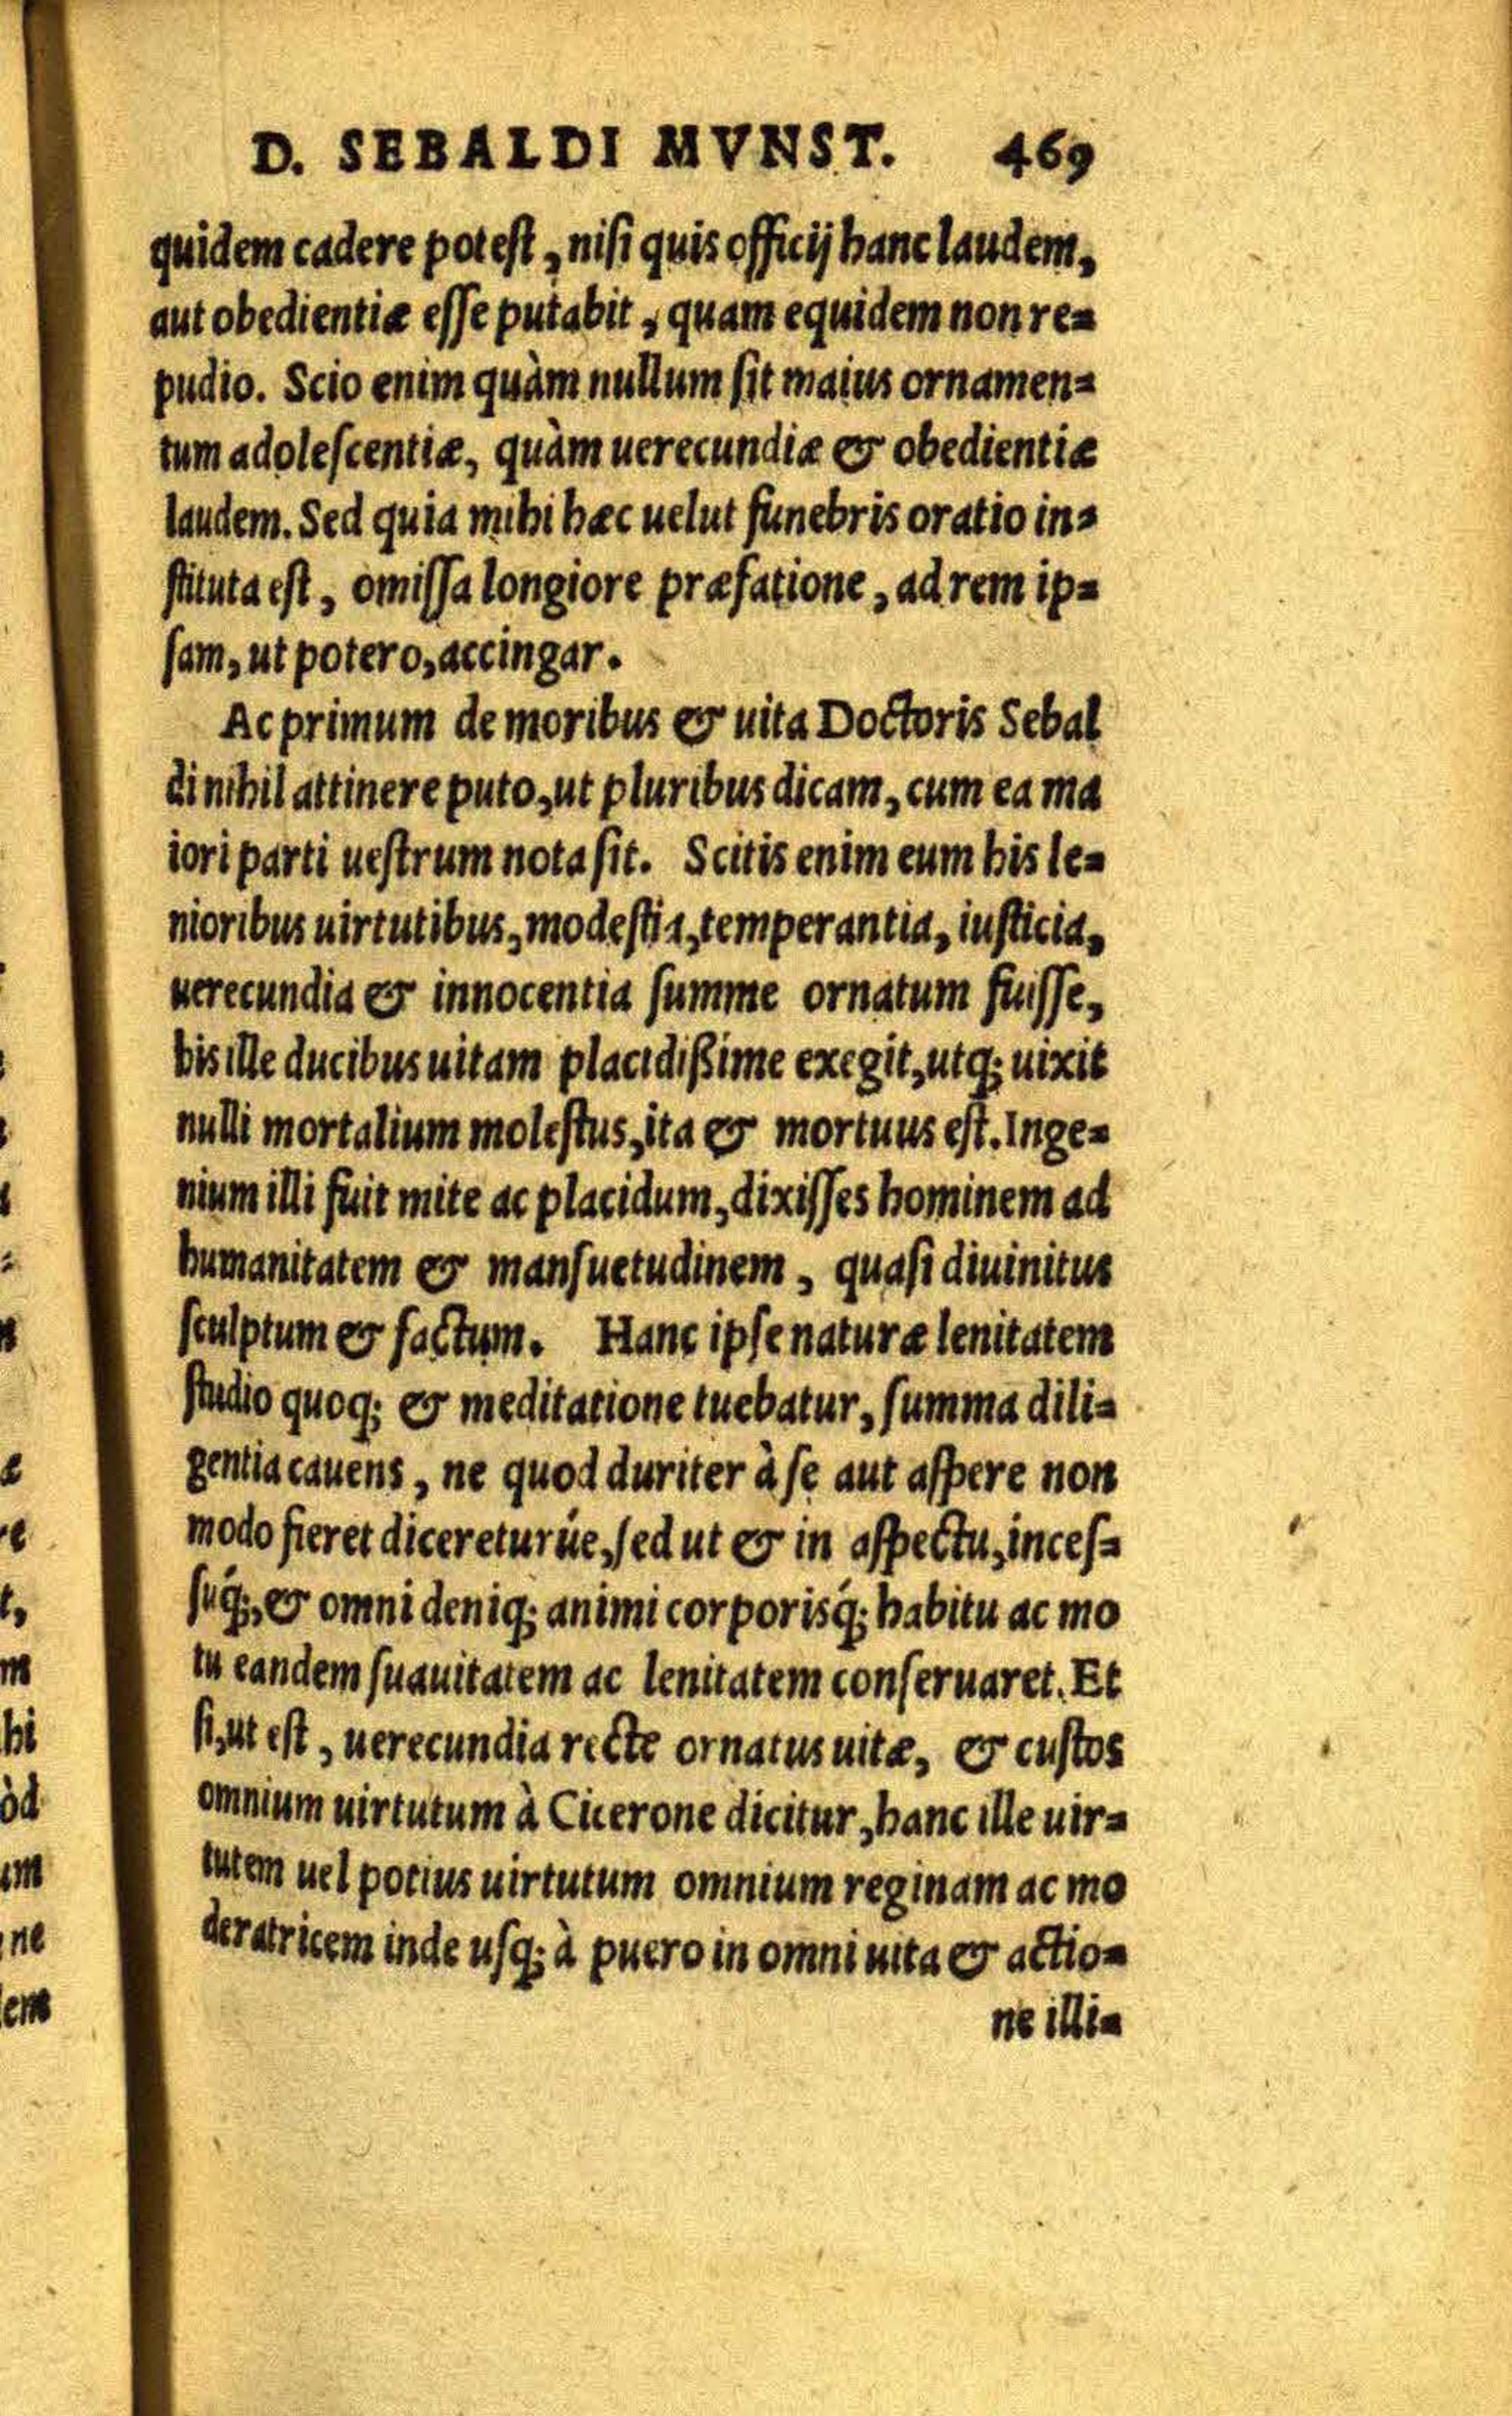 D. SEBALDI MVNST. 469
quidem cadere potest, nisi quis officij hanc laudem,
aut obedientiæ esse putabit, quam equidem non re=
pudio. Scio enim quàm nullum sit maius ornamen=
tum adolescentiæ, quàm uerecundiæ & obedientiæ
laudem. Sed quia mihi hæc uelut funebris oratio in=
stituta est, omissa longiore præfatione, ad rem ip=
sam, ut potero, accingar.
Ac primum de moribus & uita Doctoris Sebal
di nihil attinere puto, ut pluribus dicam, cum ea ma
iori parti uestrum nota sit. Scitis enim eum his le=
nioribus uirtutibus, modestia, temperantia, iusticia,
uerecundia & innocentia summe ornatum fuisse,
his ille ducibus uitam placidißime exegit, utq; uixit
nulli mortalium molestus, ita & mortuus est. Inge=
nium illi fuit mite ac placidum, dixisses hominem ad
humanitatem & mansuetudinem, quasi diuinitus
sculptum & factum. Hanc ipse naturæ lenitatem
studio quoq; & meditatione tuebatur, summa dili=
gentia cauens, ne quod duriter à se aut aspere non
modo fieret dicereturúe, sed ut & in aspectu, inces=
suq́;, & omni deniq; animi corporisq́; habitu ac mo
tu eandem suauitatem ac lenitatem conseruaret. Et
si, ut est, uerecundia recte ornatus uitæ, & custos
omnium uirtutum à Cicerone dicitur, hanc ille uir=
tutem uel potius uirtutum omnium reginam ac mo
deratricem inde usq; à puero in omni uita & actio=
ne illi=